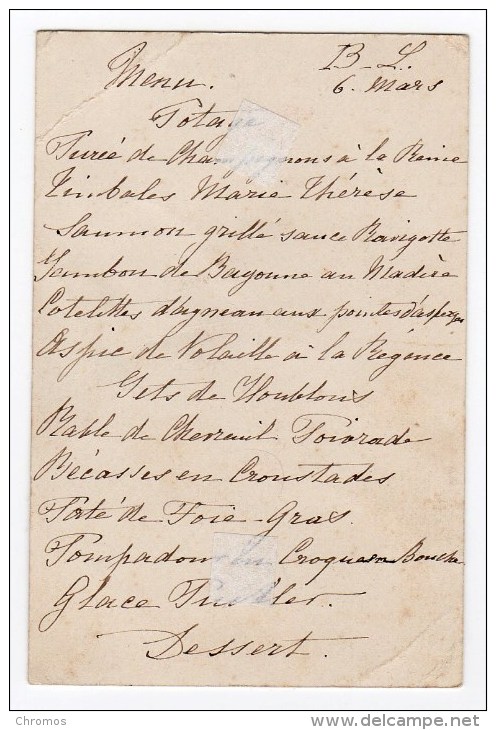 B. L.
Menu.
6. Mars
Potage
Purée de Champignons à la Reine
Timbales Marie Thérèse
Saumon grillé sauce Ravigotte
Jambon de Bayonne au Madère
Cotelettes d'agneau aux pointes d'asperges
Aspic de Volaille à la Régence
Gets de Houblons
Rable de Chevreuil Poivrade
Bécasses en Croustades
Paté de Foie-Gras.
Pompadour Croque en Bouche
Glace Puckler.
Dessert.
Chromos
http://www.delcampe.net